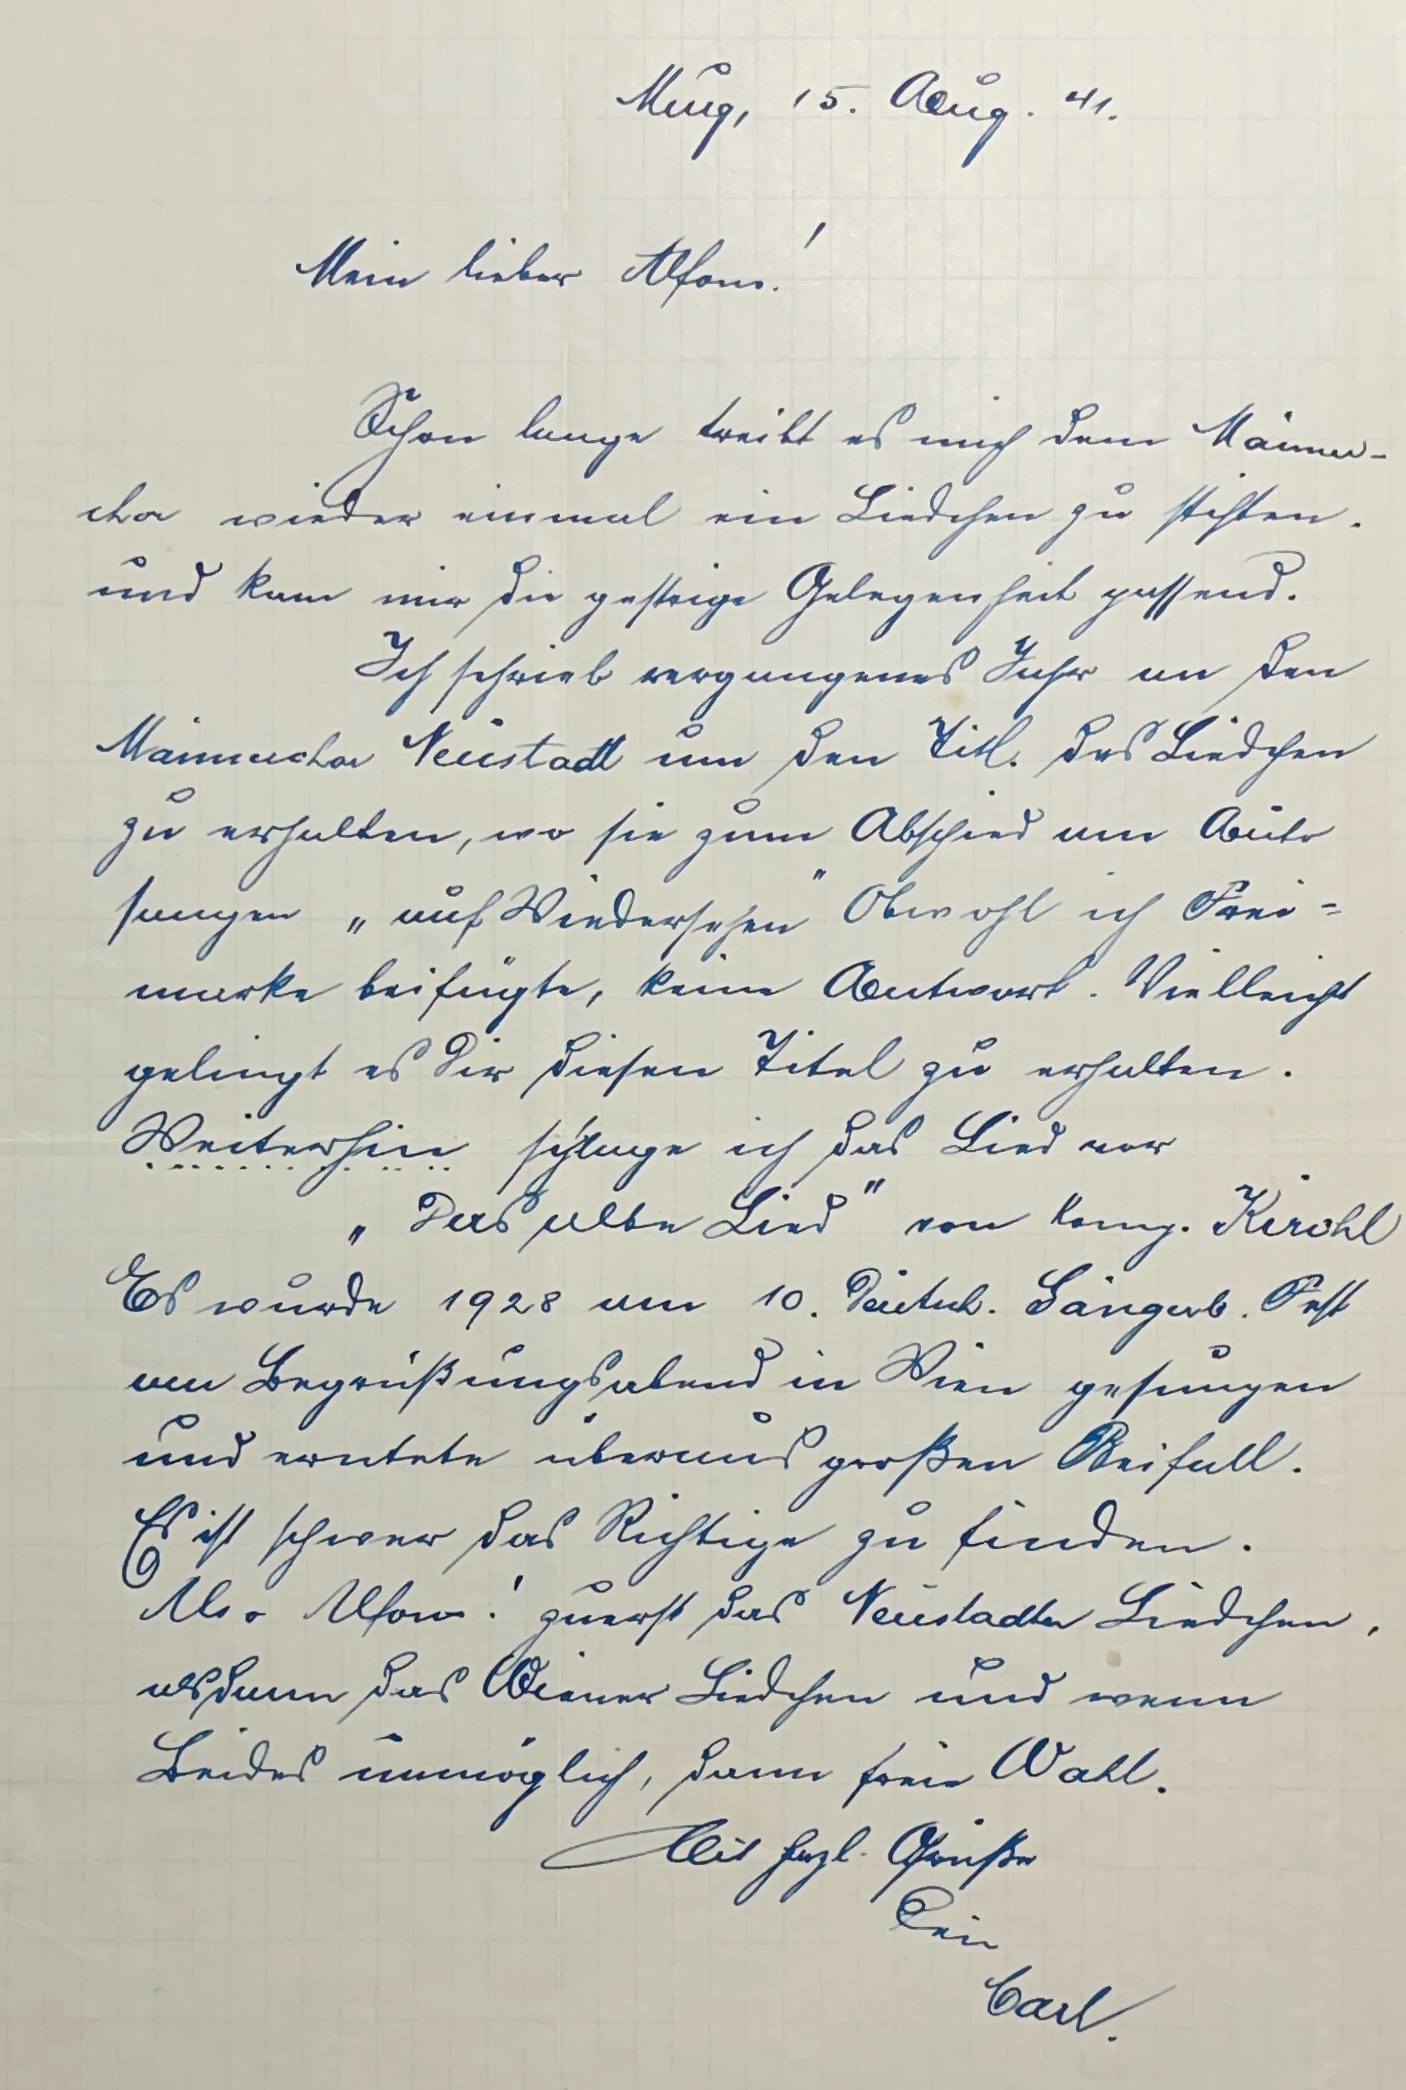 Murg, 15. Aug. 41.
Mein lieber Alfons!
Schon lange treibt es mich dem Männer-
chor wieder einmal ein Liedchen zu stiften.
und kam mir die gestrige Gelegenheit passend.
Ich schrieb vergangenes Jahr an den
Männerchor Neustadt um den Titl. des Liedchen
zu erhalten, wo sie zum Abschied am Auto
sangen „auf Wiedersehen" Obwohl ich Frei-
marke beifügte, keine Antwort. Vielleicht
gelingt es Dir diesen Titel zu erhalten.
Weiterhin schlage ich das Lied vor
„Das alte Lied" von Komp. Kirchl
Es wurde 1928 am 10. Deutsch. Sängerb. Fest
am Begrüßungsabend in Wien gesungen
und erntete überaus großen Beifall.
Es ist schwer das Richtige zu finden.
Also Alfons! zuerst das Neustadter Liedchen,
alsdann das Wiener Liedchen und wenn
Beides unmöglich, dann freie Wahl.
Mit herzl. Grüße
Dein
Carl.